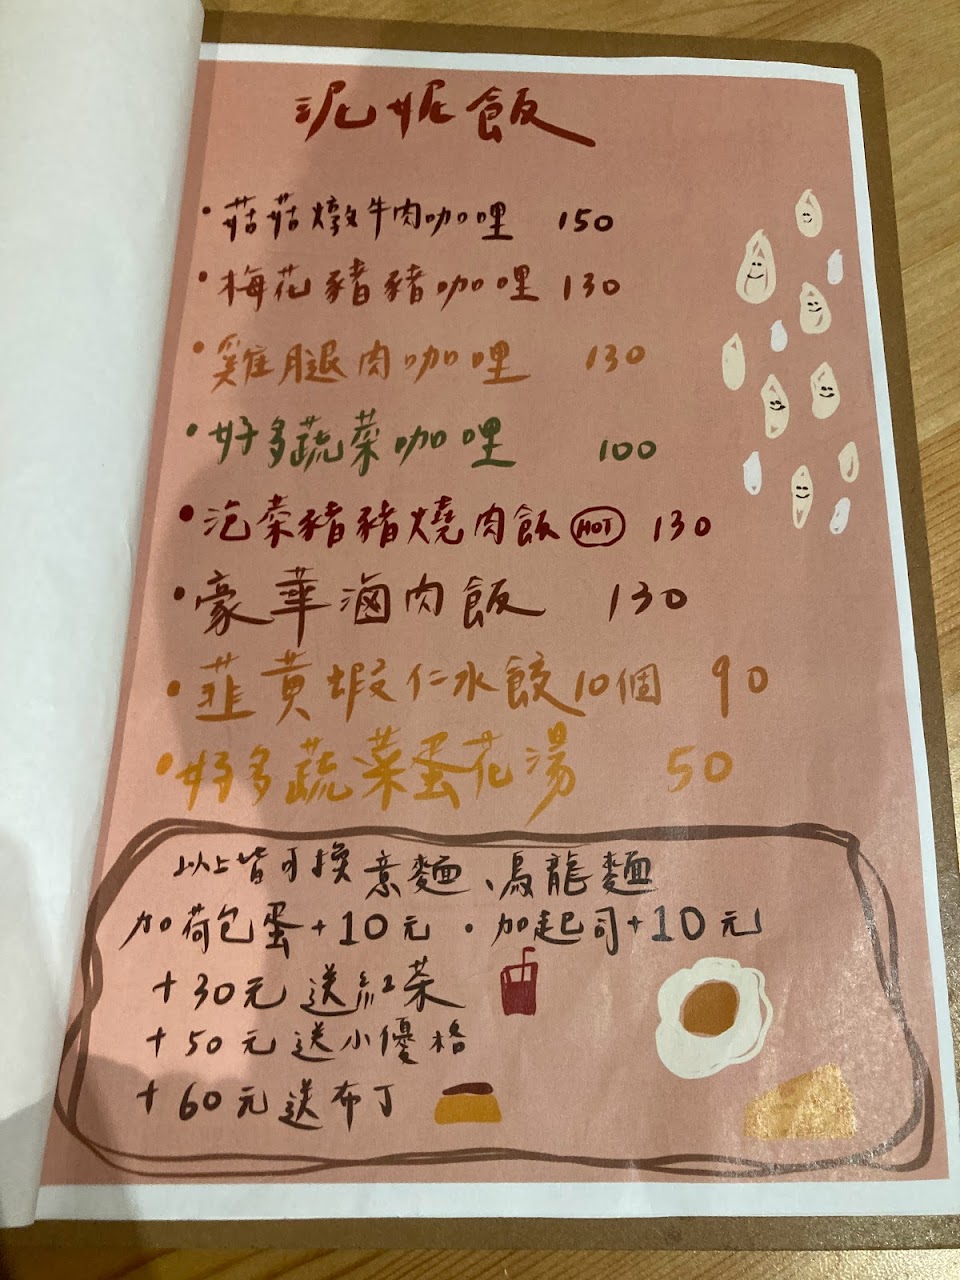 泥妮飯
• 菇菇燉牛肉咖哩 150
• 梅花豬豬咖哩 130
• 雞腿肉咖哩 130
• 好多蔬菜咖哩 100
• 泡菜豬豬燒肉飯 HOT 130
• 豪華滷肉飯 130
• 韭黃蝦仁水餃10個 90
• 好多蔬菜蛋花湯 50
以上皆可換意麵、烏龍麵
加荷包蛋+10元 · 加起司+10元
+30元送紅茶
+50元送小優格
+60元送布丁